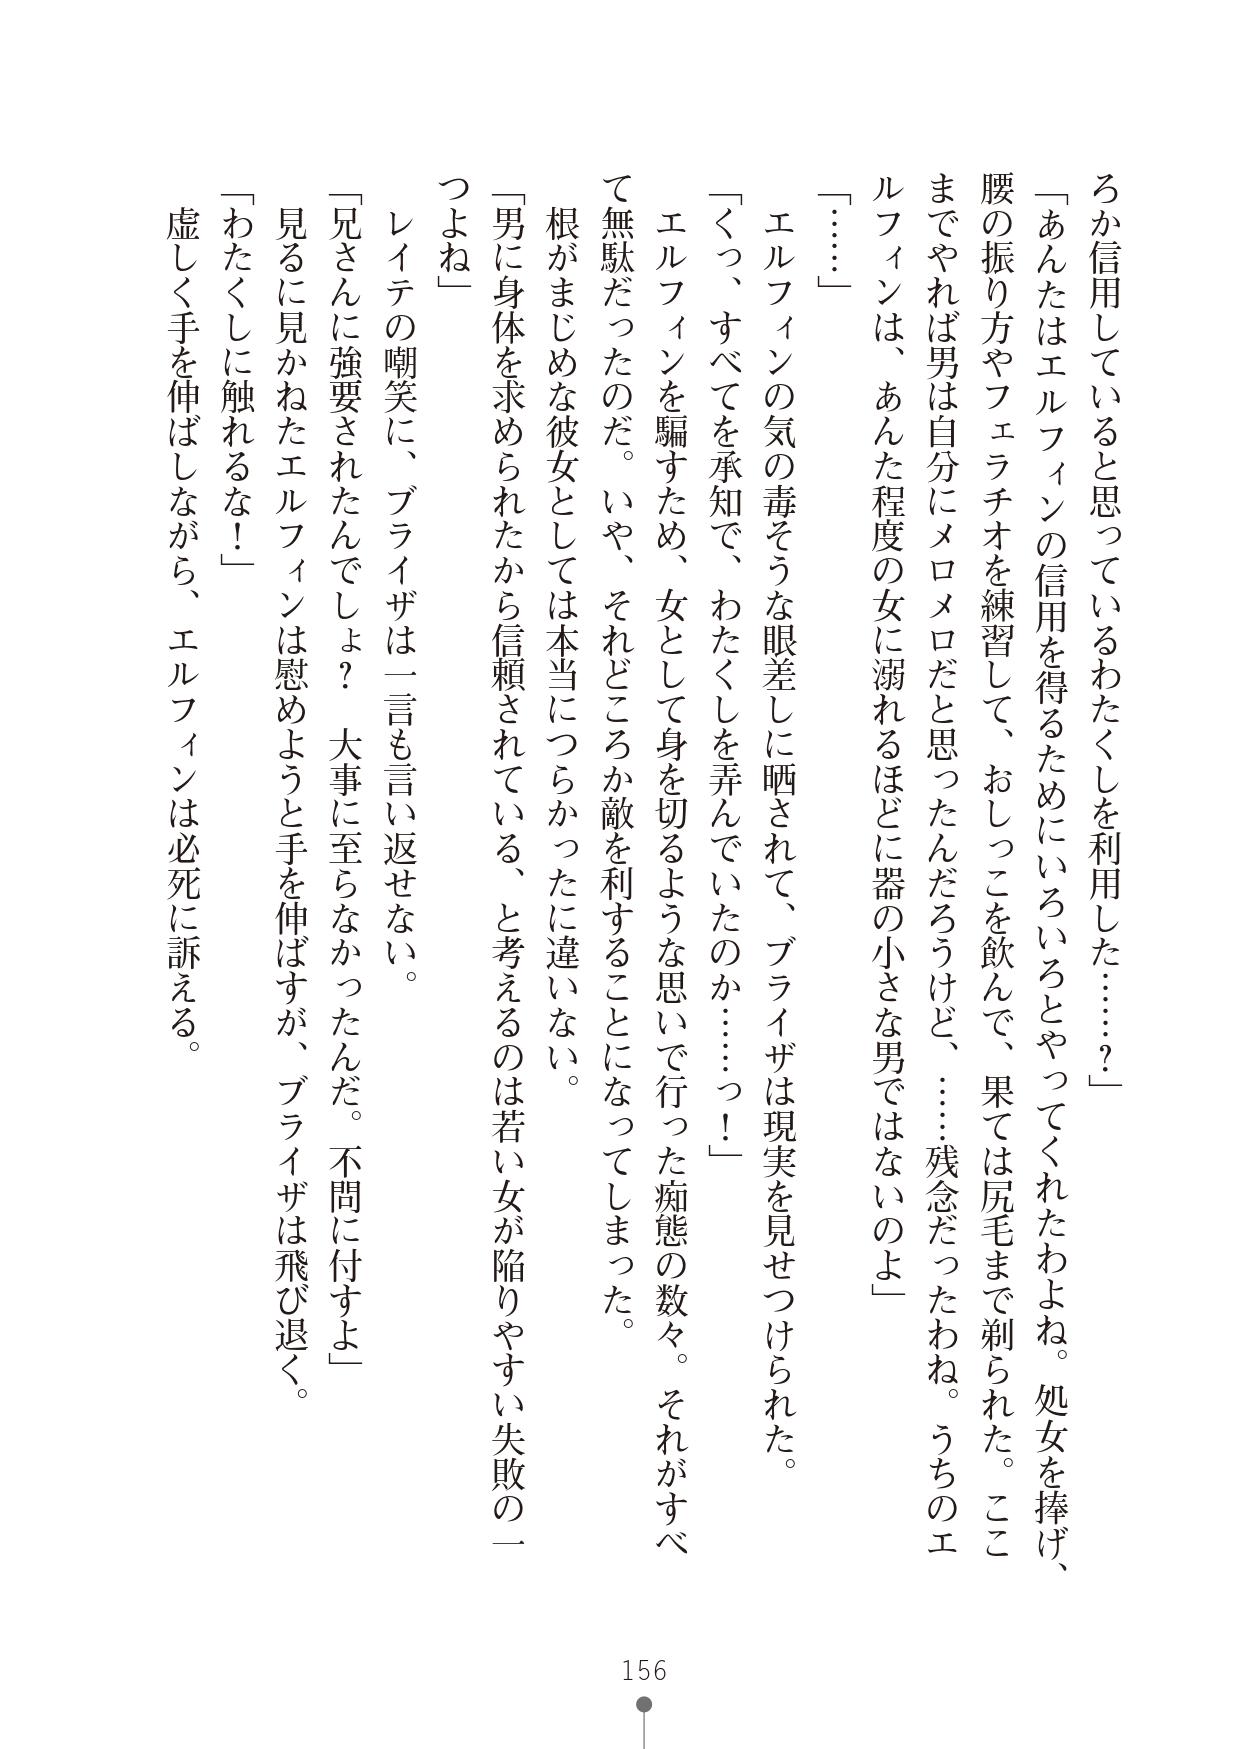 ろか信用していると思っているわたくしを利用した……？」
「あんたはエルフィンの信用を得るためにいろいろとやってくれたわよね。処女を捧げ、
腰の振り方やフェラチオを練習して、おしっこを飲んで、果ては尻毛まで剃られた。ここ
までやれば男は自分にメロメロだと思ったんだろうけど、……残念だったわね。うちのエ
ルフィンは、あんた程度の女に溺れるほどに器の小さな男ではないのよ」
「……」
　エルフィンの気の毒そうな眼差しに晒されて、ブライザは現実を見せつけられた。
「くっ、すべてを承知で、わたくしを弄んでいたのか……っ！」
　エルフィンを騙すため、女として身を切るような思いで行った痴態の数々。それがすべ
て無駄だったのだ。いや、それどころか敵を利することになってしまった。
　根がまじめな彼女としては本当につらかったに違いない。
「男に身体を求められたから信頼されている、と考えるのは若い女が陥りやすい失敗の一
つよね」
　レイテの嘲笑に、ブライザは一言も言い返せない。
「兄さんに強要されたんでしょ？　大事に至らなかったんだ。不問に付すよ」
　見るに見かねたエルフィンは慰めようと手を伸ばすが、ブライザは飛び退く。
「わたくしに触れるな！」
　虚しく手を伸ばしながら、エルフィンは必死に訴える。
156